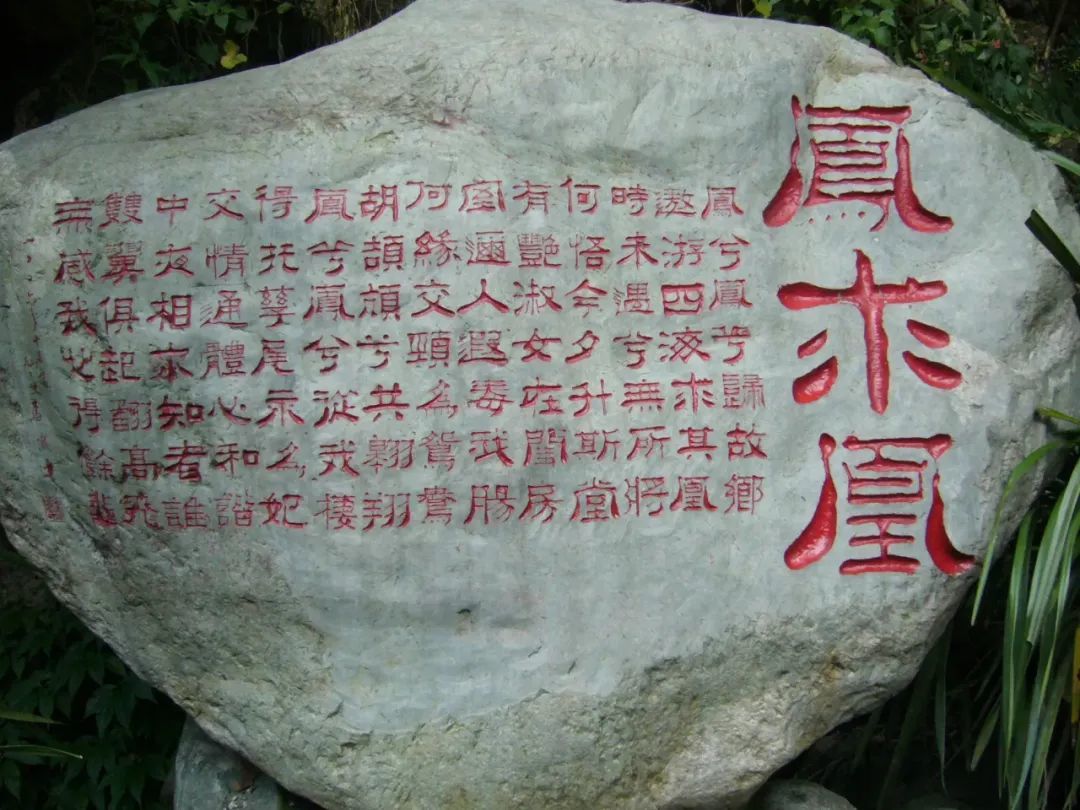 鳳求凰
鳳兮鳳兮歸故鄉
遨游四海求其凰
時未遇兮無所將
何悟今夕升斯堂
有豔淑女在閨房
室邇人遐毒我腸
何緣交頸為鴛鴦
胡頡頏兮共翱翔
凰兮凰兮從我棲
得托孳尾永為妃
交情通體心和諧
中夜相從知者誰
雙翼俱起翻高飛
無感我心得餘悲